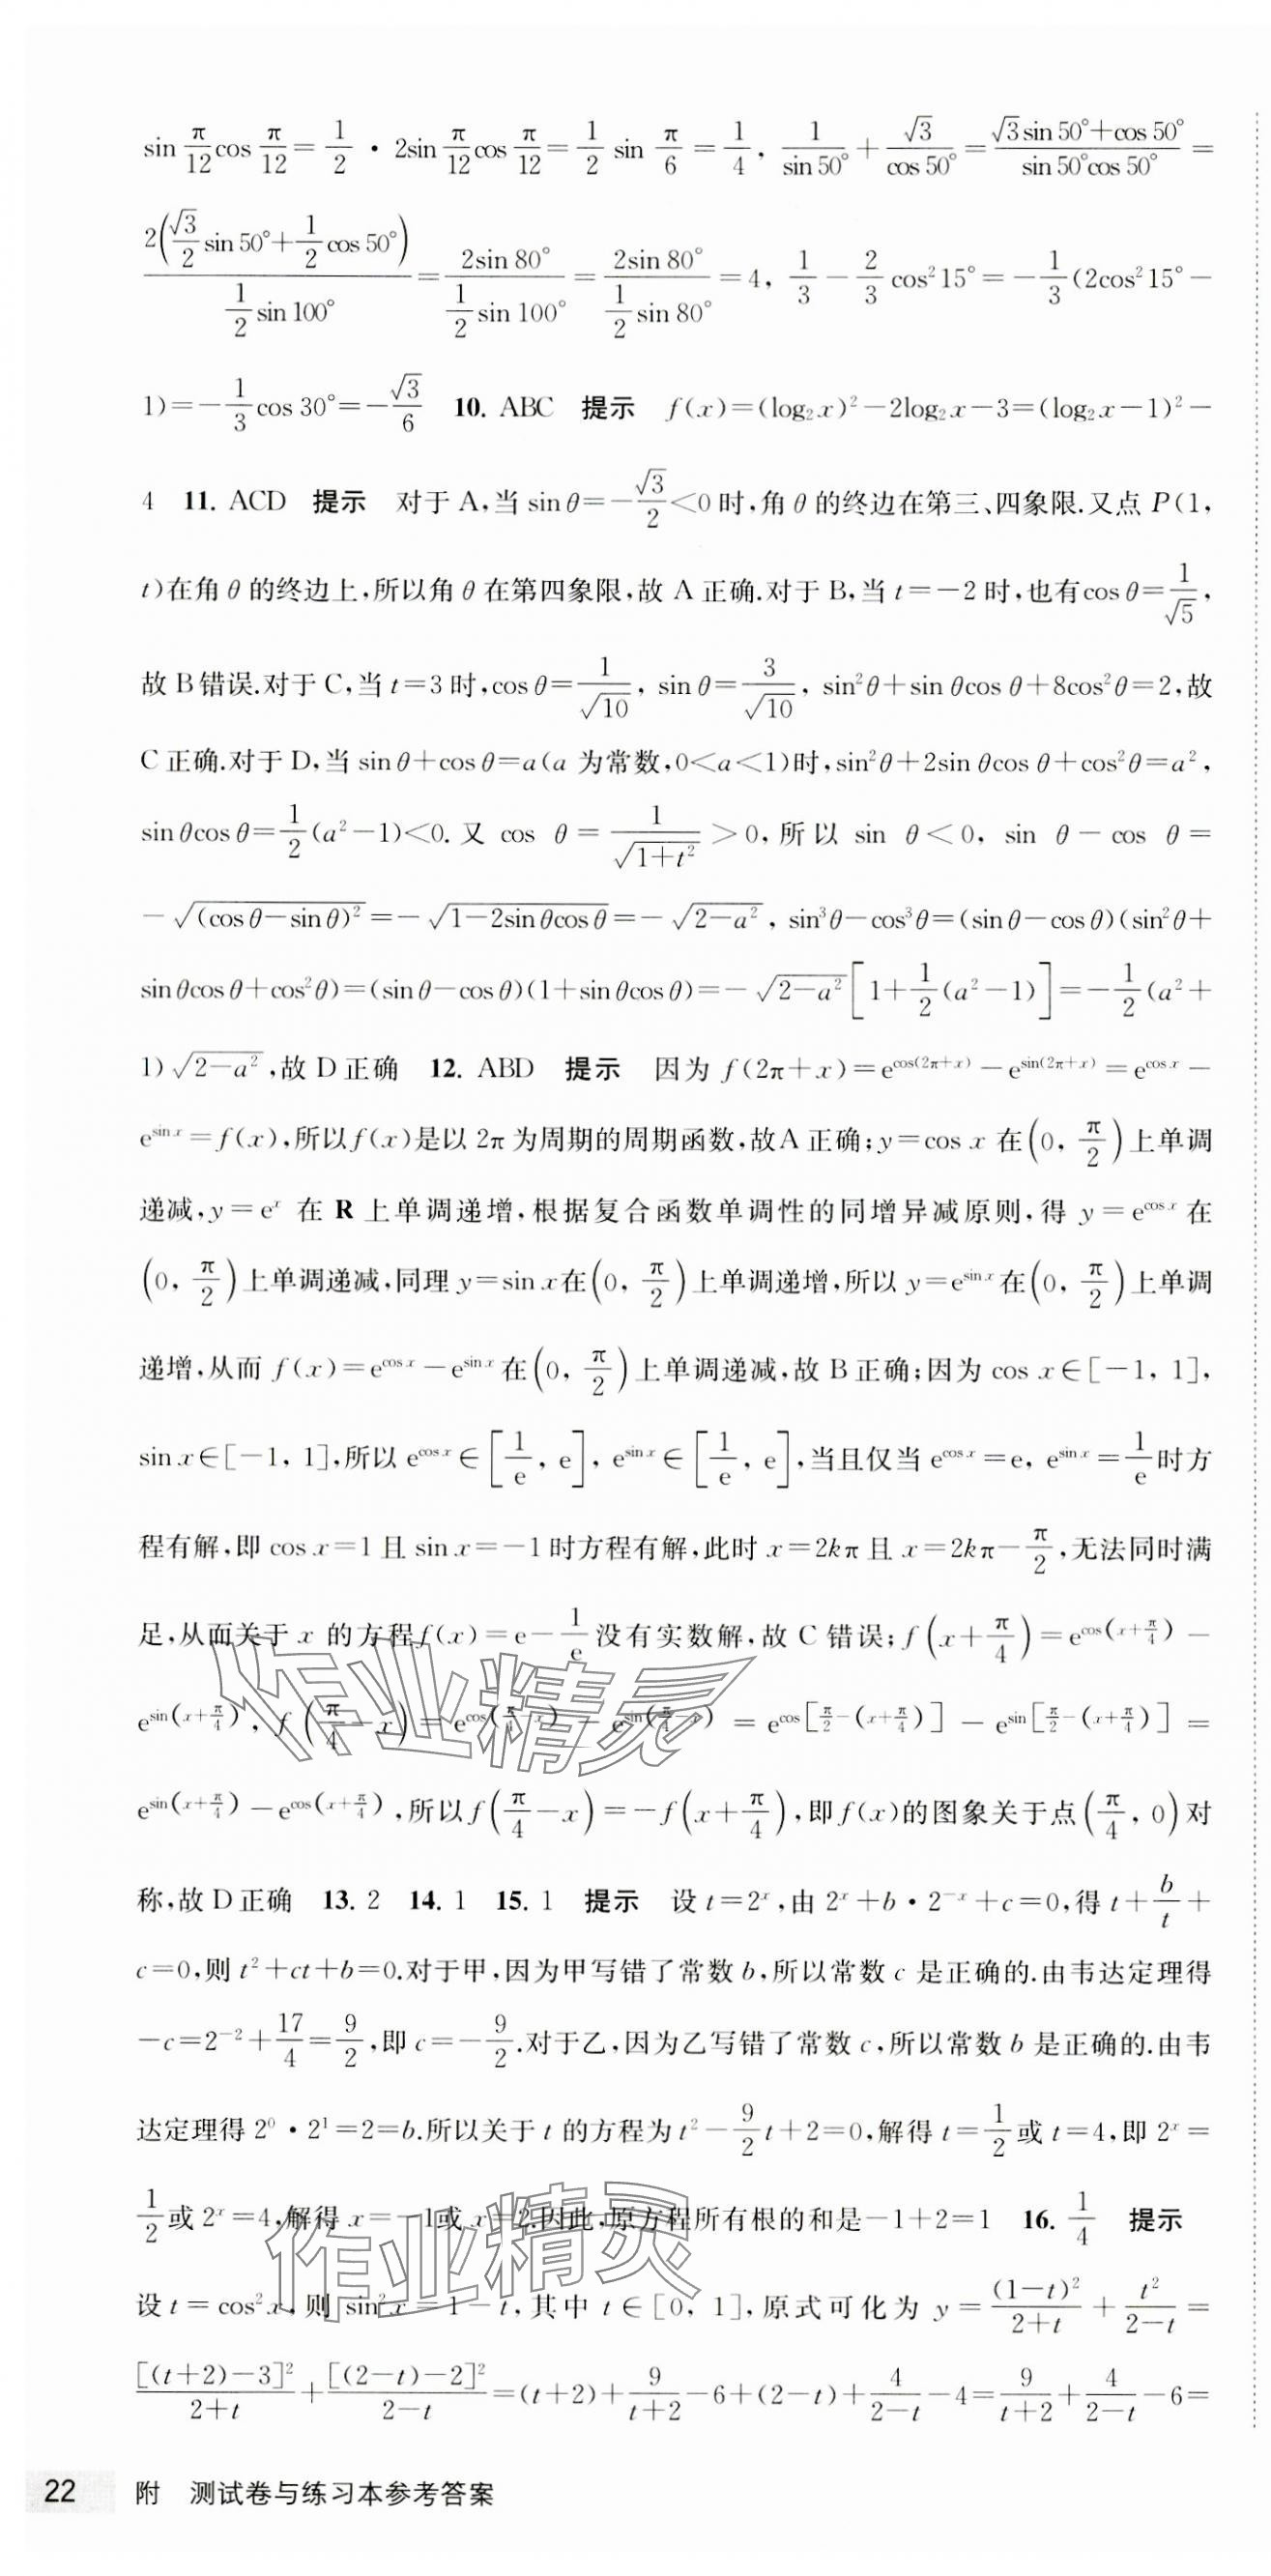 sin π/12 cos π/12 = 1/2 · 2sin π/12 cos π/12 = 1/2 sin π/6 = 1/4, 1/sin 50° + √3/cos 50° = (√3 sin 50°+cos 50°)/(sin 50°cos 50°) =
2(√3/2 sin 50°+1/2 cos 50°)/(1/2 sin 100°) = 2sin 80°/(1/2 sin 100°) = 2sin 80°/(1/2 sin 80°) =4, 1/3 − 2/3 cos²15°=−1/3(2cos²15°−
1)=−1/3 cos 30°=−√3/6 10. ABC 提示 f(x)=(log₂x)²−2log₂x−3=(log₂x−1)²−
4 11. ACD 提示 对于 A,当 sin θ=−√3/2<0 时,角 θ 的终边在第三、四象限.又点 P(1,
t)在角 θ 的终边上,所以角 θ 在第四象限,故 A 正确.对于 B,当 t=−2 时,也有cos θ=1/√5,
故 B 错误.对于 C,当 t=3 时,cos θ=1/√10, sin θ=3/√10, sin²θ+sin θcos θ+8cos²θ=2,故
C 正确.对于 D,当 sin θ+cos θ=a(a 为常数,0<a<1)时,sin²θ+2sin θcos θ+cos²θ=a²,
sin θcos θ=1/2(a²−1)<0. 又 cos θ = 1/√(1+t²) >0, 所以 sin θ<0, sin θ−cos θ=
−√((cos θ−sin θ)²)=−√(1−2sin θcos θ)=−√(2−a²), sin³θ−cos³θ=(sin θ−cos θ)(sin²θ+
sin θcos θ+cos²θ)=(sin θ−cos θ)(1+sin θcos θ)=−√(2−a²)[1+1/2(a²−1)]=−1/2(a²+
1)√(2−a²),故 D 正确 12. ABD 提示 因为 f(2π+x)=e^cos(2π+x)−e^sin(2π+x)=e^cos x−
e^sin x=f(x),所以f(x)是以 2π 为周期的周期函数,故A 正确;y=cos x 在(0, π/2)上单调
递减,y=e^x 在 R 上单调递增,根据复合函数单调性的同增异减原则,得 y=e^cos x 在
(0, π/2)上单调递减,同理 y=sin x在(0, π/2)上单调递增,所以 y=e^sin x 在(0, π/2)上单调
递增,从而 f(x)=e^cos x−e^sin x 在(0, π/2)上单调递减,故 B 正确;因为 cos x∈[−1, 1],
sin x∈[−1, 1],所以 e^cos x∈[1/e, e], e^sin x∈[1/e, e],当且仅当 e^cos x=e, e^sin x=1/e时方
程有解,即 cos x=1 且 sin x=−1时方程有解,此时 x=2kπ 且 x=2kπ−π/2,无法同时满
足,从而关于 x 的方程f(x)=e−1/e 没有实数解,故 C 错误;f(x+π/4)=e^cos(x+π/4)−
e^sin(x+π/4), f(π/4−x)=e^cos(π/4−x)−e^sin(π/4−x)=e^cos[π/2−(x+π/4)]−e^sin[π/2−(x+π/4)]=
e^sin(x+π/4)−e^cos(x+π/4),所以f(π/4−x)=−f(x+π/4),即f(x)的图象关于点(π/4, 0)对
称,故 D 正确 13. 2 14. 1 15. 1 提示 设 t=2^x,由 2^x+b·2^−x+c=0,得 t+b/t+
c=0,则 t²+ct+b=0.对于甲,因为甲写错了常数 b,所以常数 c 是正确的.由韦达定理得
−c=2⁻²+17/4=9/2,即 c=−9/2.对于乙,因为乙写错了常数 c,所以常数 b 是正确的.由韦
达定理得 2⁰·2¹=2=b.所以关于 t 的方程为 t²−9/2 t+2=0,解得 t=1/2 或 t=4,即 2^x=
1/2 或 2^x=4,解得 x=−1或 x=2.因此,原方程所有根的和是−1+2=1 16. 1/4 提示
设 t=cos²x,则 sin²x=1−t,其中 t∈[0, 1],原式可化为 y=(1−t)²/(2+t)+t²/(2−t)=
[(t+2)−3]²/(2+t)+[(2−t)−2]²/(2−t)=(t+2)+9/(t+2)−6+(2−t)+4/(2−t)−4=9/(t+2)+4/(2−t)−6=
作业精灵
作业精灵
22 附 测试卷与练习本参考答案